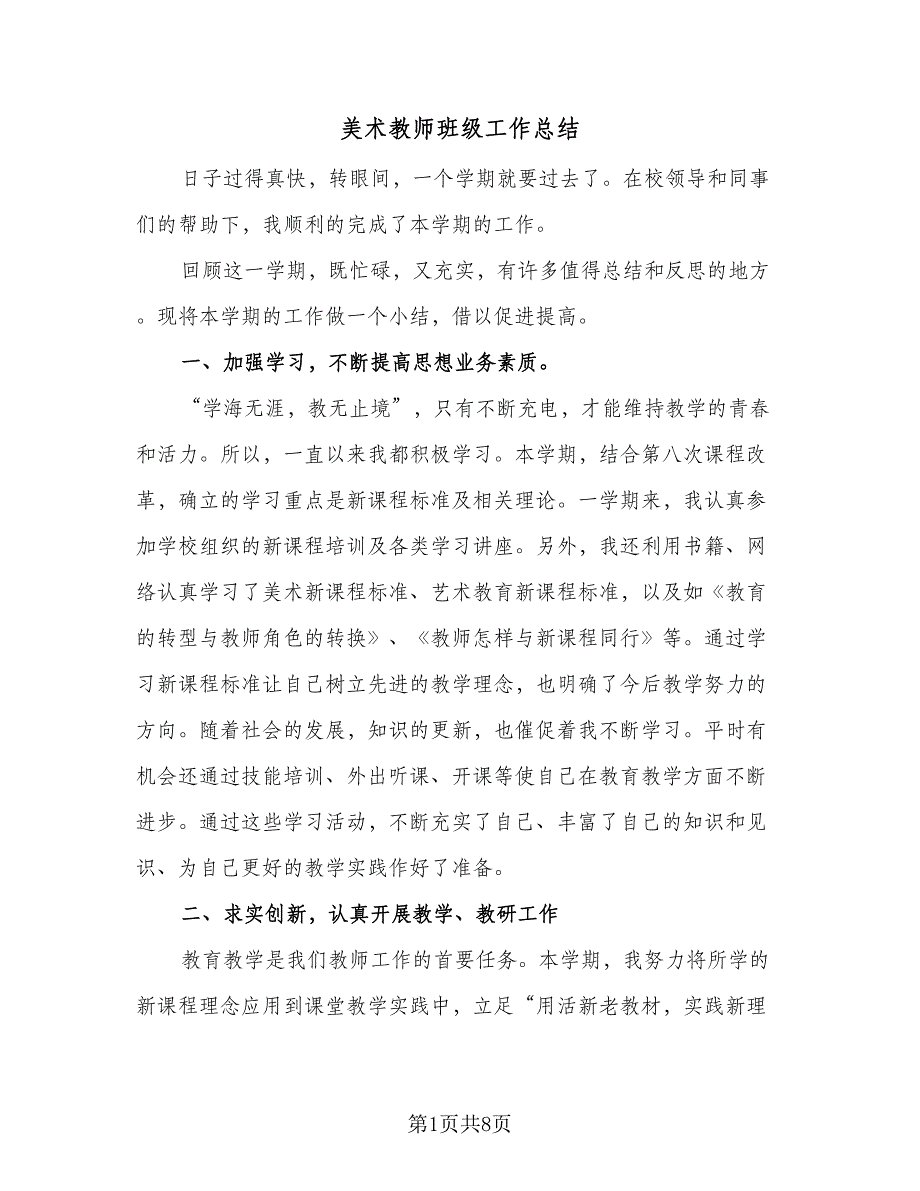 美术教师班级工作总结
日子过得真快，转眼间，一个学期就要过去了。在校领导和同事
们的帮助下，我顺利的完成了本学期的工作。
回顾这一学期，既忙碌，又充实，有许多值得总结和反思的地方
。现将本学期的工作做一个小结，借以促进提高。
一、加强学习，不断提高思想业务素质。
“学海无涯，教无止境”，只有不断充电，才能维持教学的青春
和活力。所以，一直以来我都积极学习。本学期，结合第八次课程改
革，确立的学习重点是新课程标准及相关理论。一学期来，我认真参
加学校组织的新课程培训及各类学习讲座。另外，我还利用书籍、网
络认真学习了美术新课程标准、艺术教育新课程标准，以及如《教育
的转型与教师角色的转换》、《教师怎样与新课程同行》等。通过学
习新课程标准让自己树立先进的教学理念，也明确了今后教学努力的
方向。随着社会的发展，知识的更新，也催促着我不断学习。平时有
机会还通过技能培训、外出听课、开课等使自己在教育教学方面不断
进步。通过这些学习活动，不断充实了自己、丰富了自己的知识和见
识、为自己更好的教学实践作好了准备。
二、求实创新，认真开展教学、教研工作
教育教学是我们教师工作的首要任务。本学期，我努力将所学的
新课程理念应用到课堂教学实践中，立足“用活新老教材，实践新理
第1页共8页